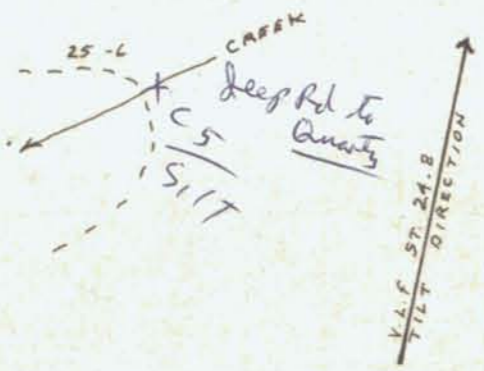 CREEK
25-L
Jeep Rd to
Quartz
C5
SILT
V.L.F ST. 24.8
TILT DIRECTION